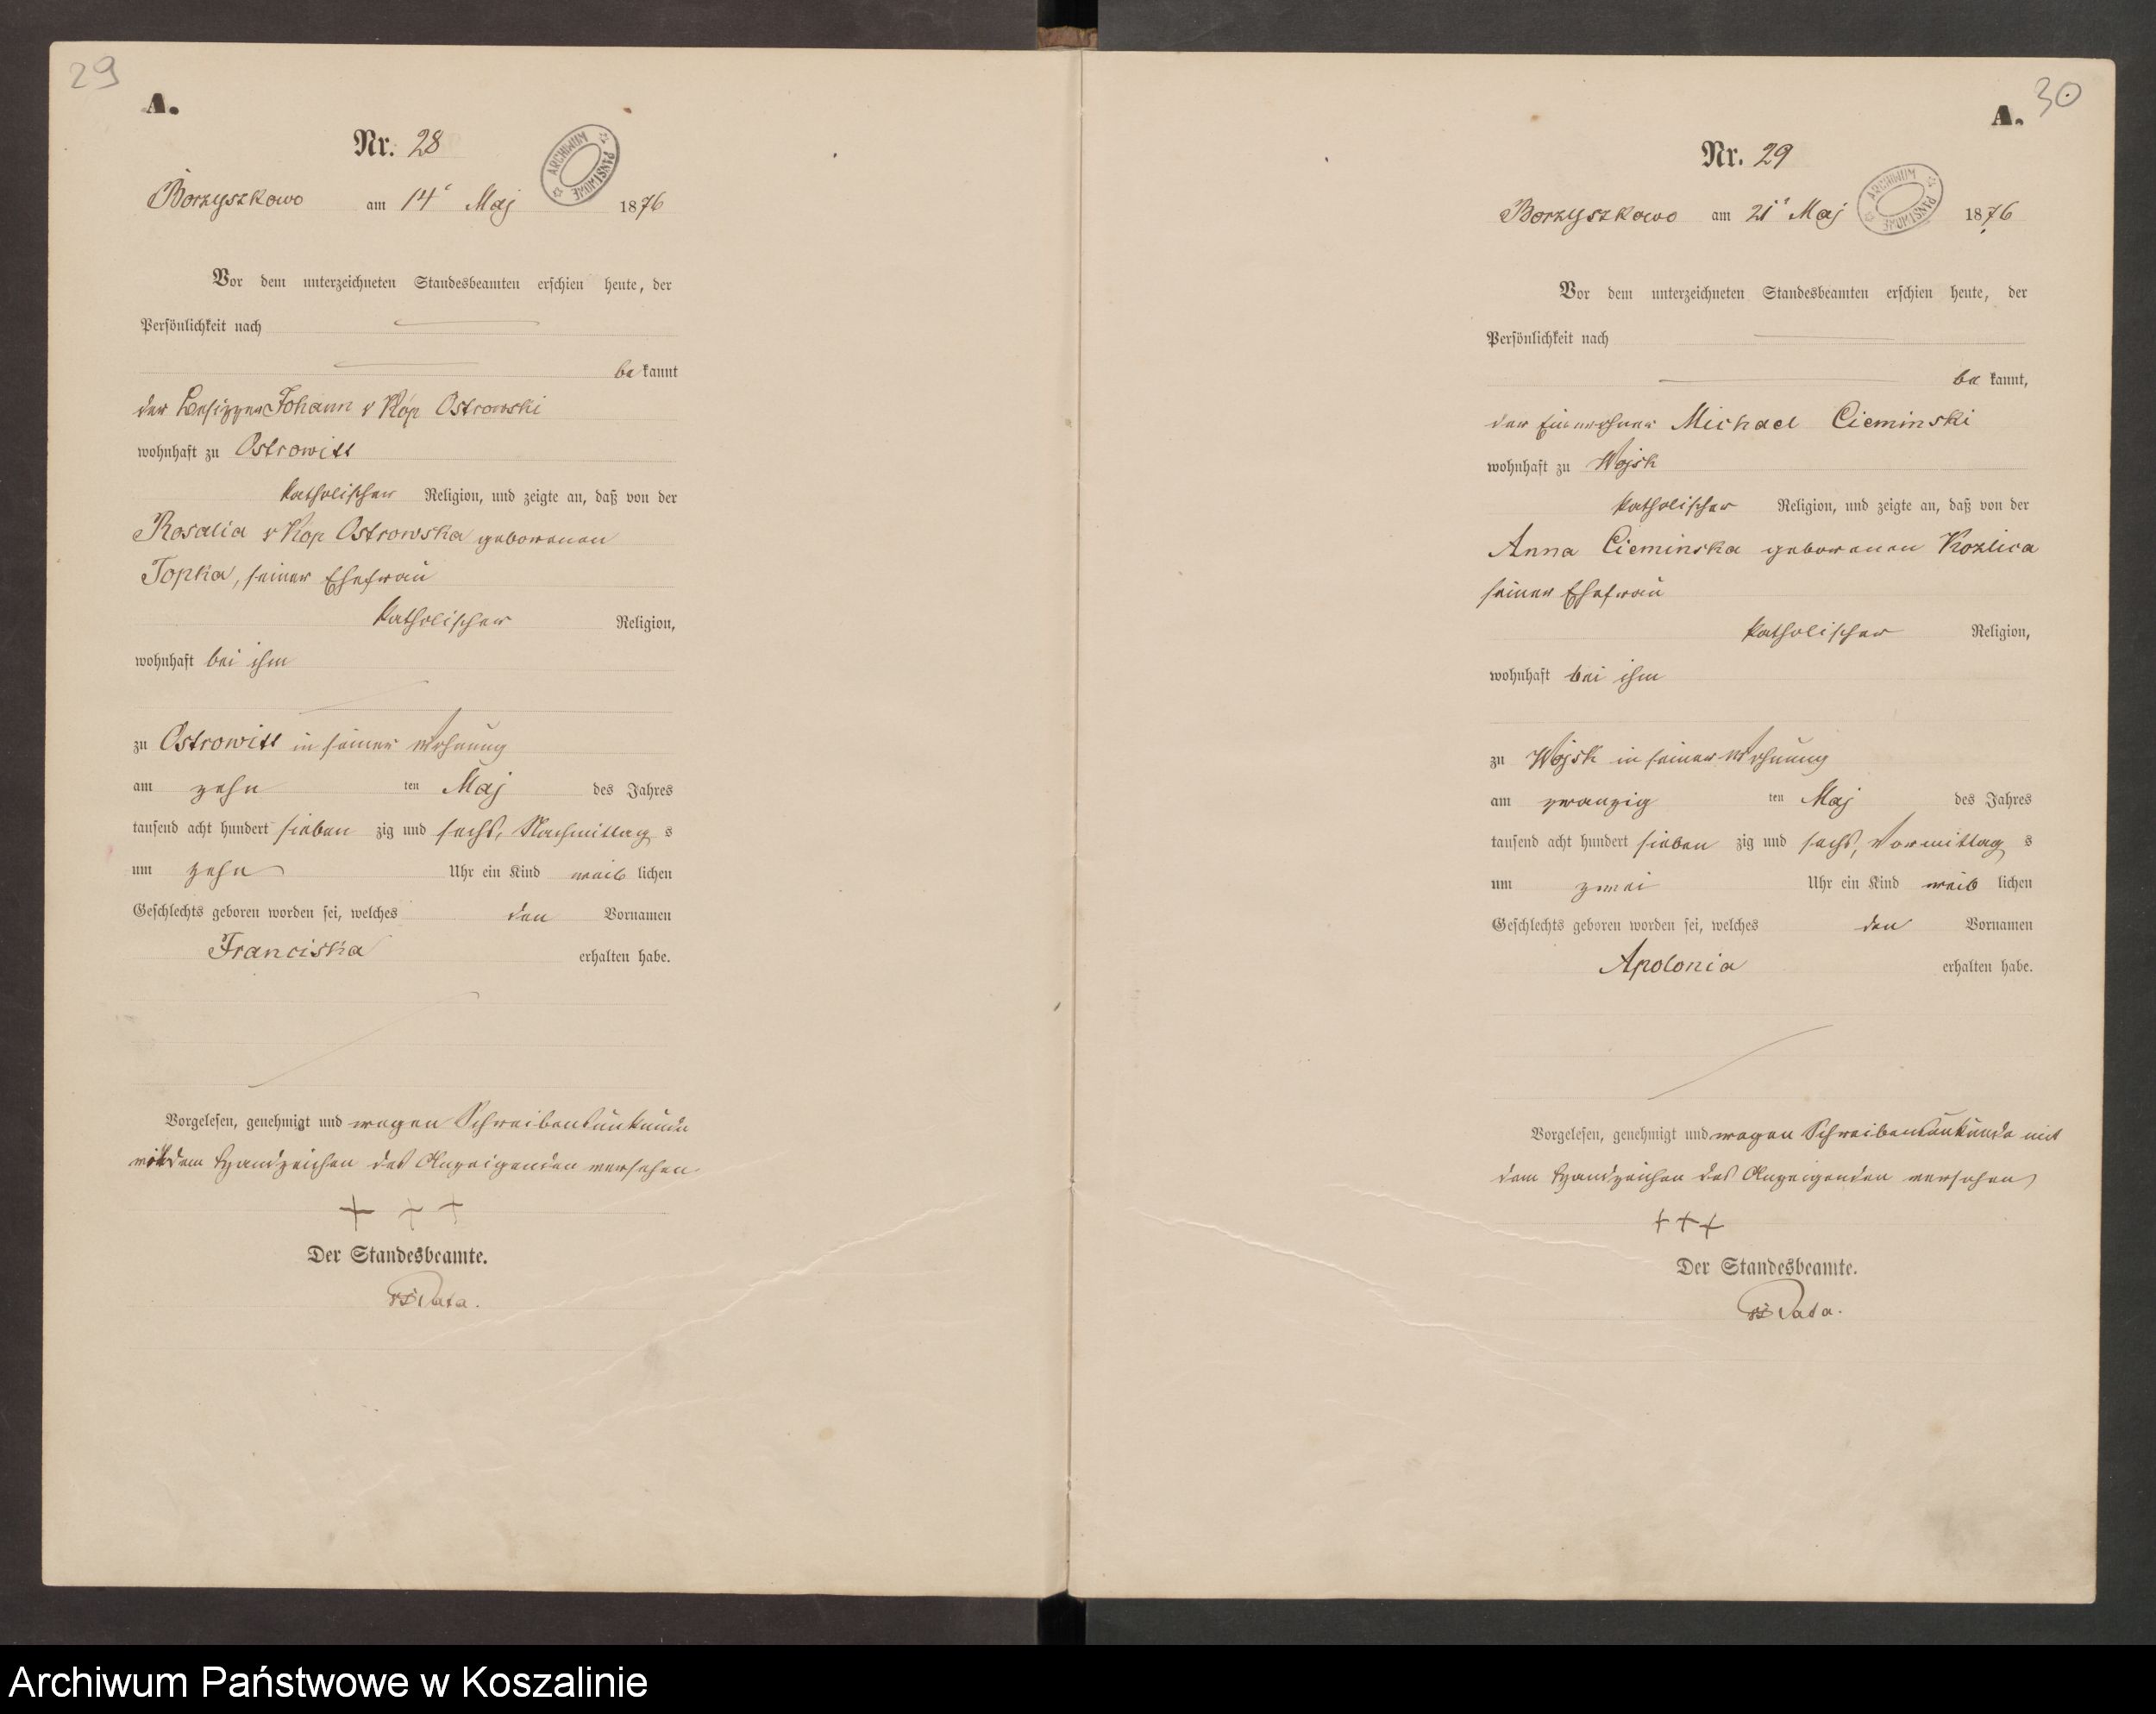 29
A.
Nr. 28
ARCHIWUM PAŃSTWOWE
Borzyszkowo am 14t Maj 1876
Vor dem unterzeichneten Standesbeamten erschien heute, der
Persönlichkeit nach
be kannt
der Besitzer Johann v Kop Ostrowski
wohnhaft zu Ostrowitt
katholischer Religion, und zeigte an, daß von der
Rosalia v Kop Ostrowska geborenen
Topka, seiner Ehefrau
katholischer Religion,
wohnhaft bei ihm
zu Ostrowitt in seiner Wohnung
am zehn ten Maj des Jahres
tausend acht hundert sieben zig und sechs, Nachmittag s
um zehn Uhr ein Kind weib lichen
Geschlechts geboren worden sei, welches den Vornamen
Franciska erhalten habe.
Vorgelesen, genehmigt und wegen Schreibensunkunde
mit dem Handzeichen des Anzeigenden versehen
+ + +
Der Standesbeamte.
30
A.
Nr. 29
ARCHIWUM PAŃSTWOWE
Borzyszkowo am 21t Maj 1876
Vor dem unterzeichneten Standesbeamten erschien heute, der
Persönlichkeit nach
be kannt,
der Einwohner Michael Cieminski
wohnhaft zu Wojsk
katholischer Religion, und zeigte an, daß von der
Anna Cieminska geborenen Kozlica
seiner Ehefrau
katholischer Religion,
wohnhaft bei ihm
zu Wojsk in seiner Wohnung
am zwanzig ten Maj des Jahres
tausend acht hundert sieben zig und sechs, Vormittag s
um zwei Uhr ein Kind weib lichen
Geschlechts geboren worden sei, welches den Vornamen
Apolonia erhalten habe.
Vorgelesen, genehmigt und wegen Schreibensunkunde mit
dem Handzeichen des Anzeigenden versehen
+ + +
Der Standesbeamte.
Archiwum Państwowe w Koszalinie